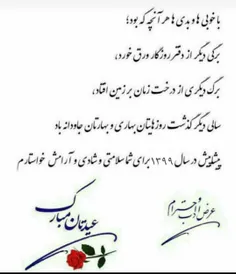 با خوبی ها و بدی ها هر آنچه که بود؛
برگی دیگر از دفتر روزگار ورق خورد،
برگ دیگری از درخت زمان بر زمین افتاد،
سالی دیگر گذشت روزهایتان بهاری و بهارتان جاودانه باد
پیشاپیش در سال ۱۳۹۹ برای شما سلامتی و شادی و آرامش خواستارم
عرض ادب و احترام
عیدتان مبارک